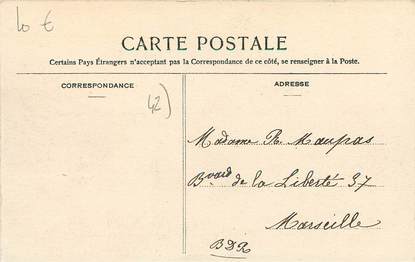 10 €
CARTE POSTALE
Certains Pays Étrangers n'acceptant pas la Correspondance de ce côté, se renseigner à la Poste.
CORRESPONDANCE
ADRESSE
42)
Madame R. Maupas
Bvard de la Liberté 37
Marseille
BDR